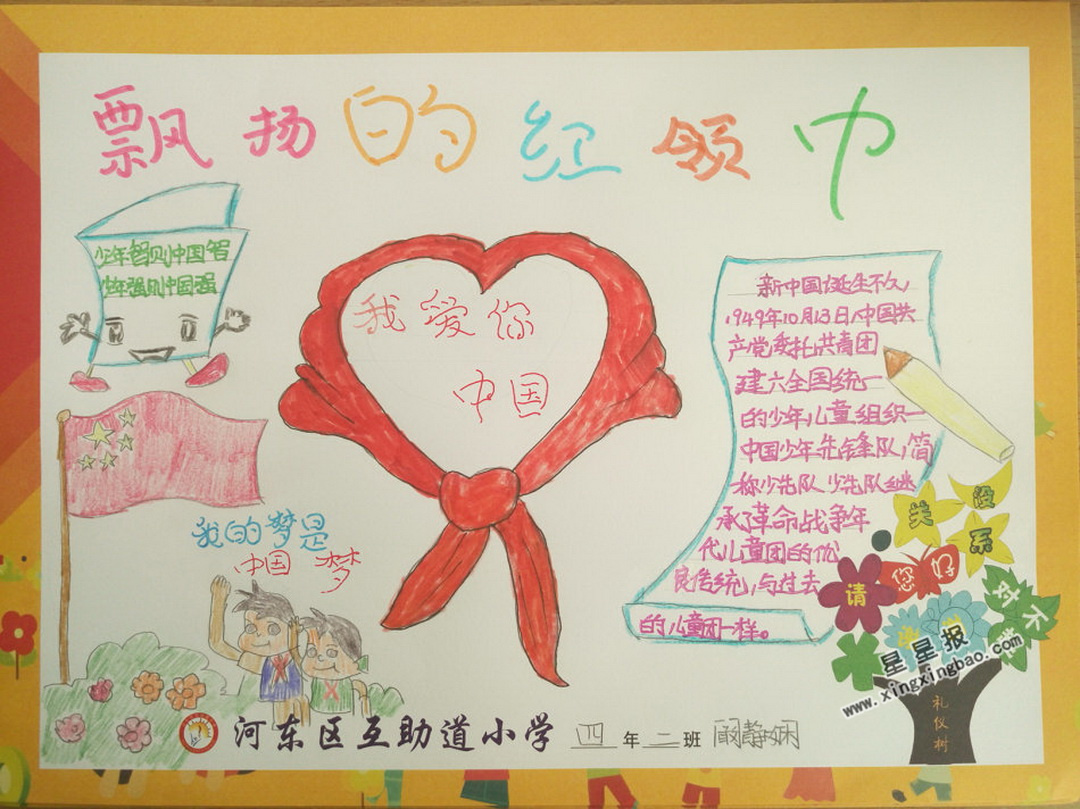 飘扬的红领巾
少年智则中国智
少年强则中国强
我爱你
中国
我的梦是
中国梦
新中国诞生不久,
1949年10月13日,中国共
产党委托共青团
建立全国统一
的少年儿童组织—
中国少年先锋队,简
称少先队 少先队继
承了革命战争年
代儿童团的优
良传统,与过去
的儿童团一样。
没
关
系
您好
请
对不
星星报
www.xingxingbao.com
礼仪树
河东区互助道小学 四年二班 阚静娴